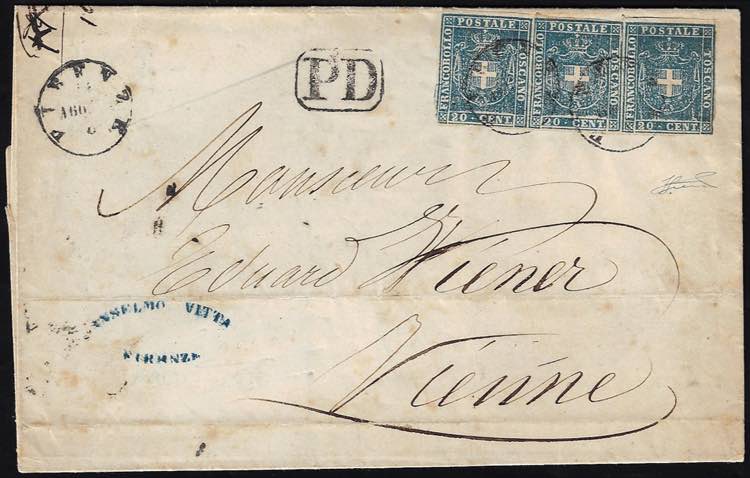 PD
FRANCOBOLLO POSTALE TOSCANO
20 CENT
FRANCOBOLLO POSTALE TOSCANO
20 CENT
FRANCOBOLLO POSTALE TOSCANO
20 CENT
FIRENZE
AGO
Monsieur
Eduard Wiener
Vienne
ANSELMO VITTA
FIRENZE